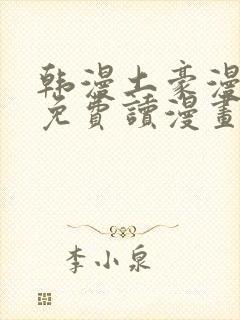 韩漫土豪漫
免費讀漫畫
李小泉